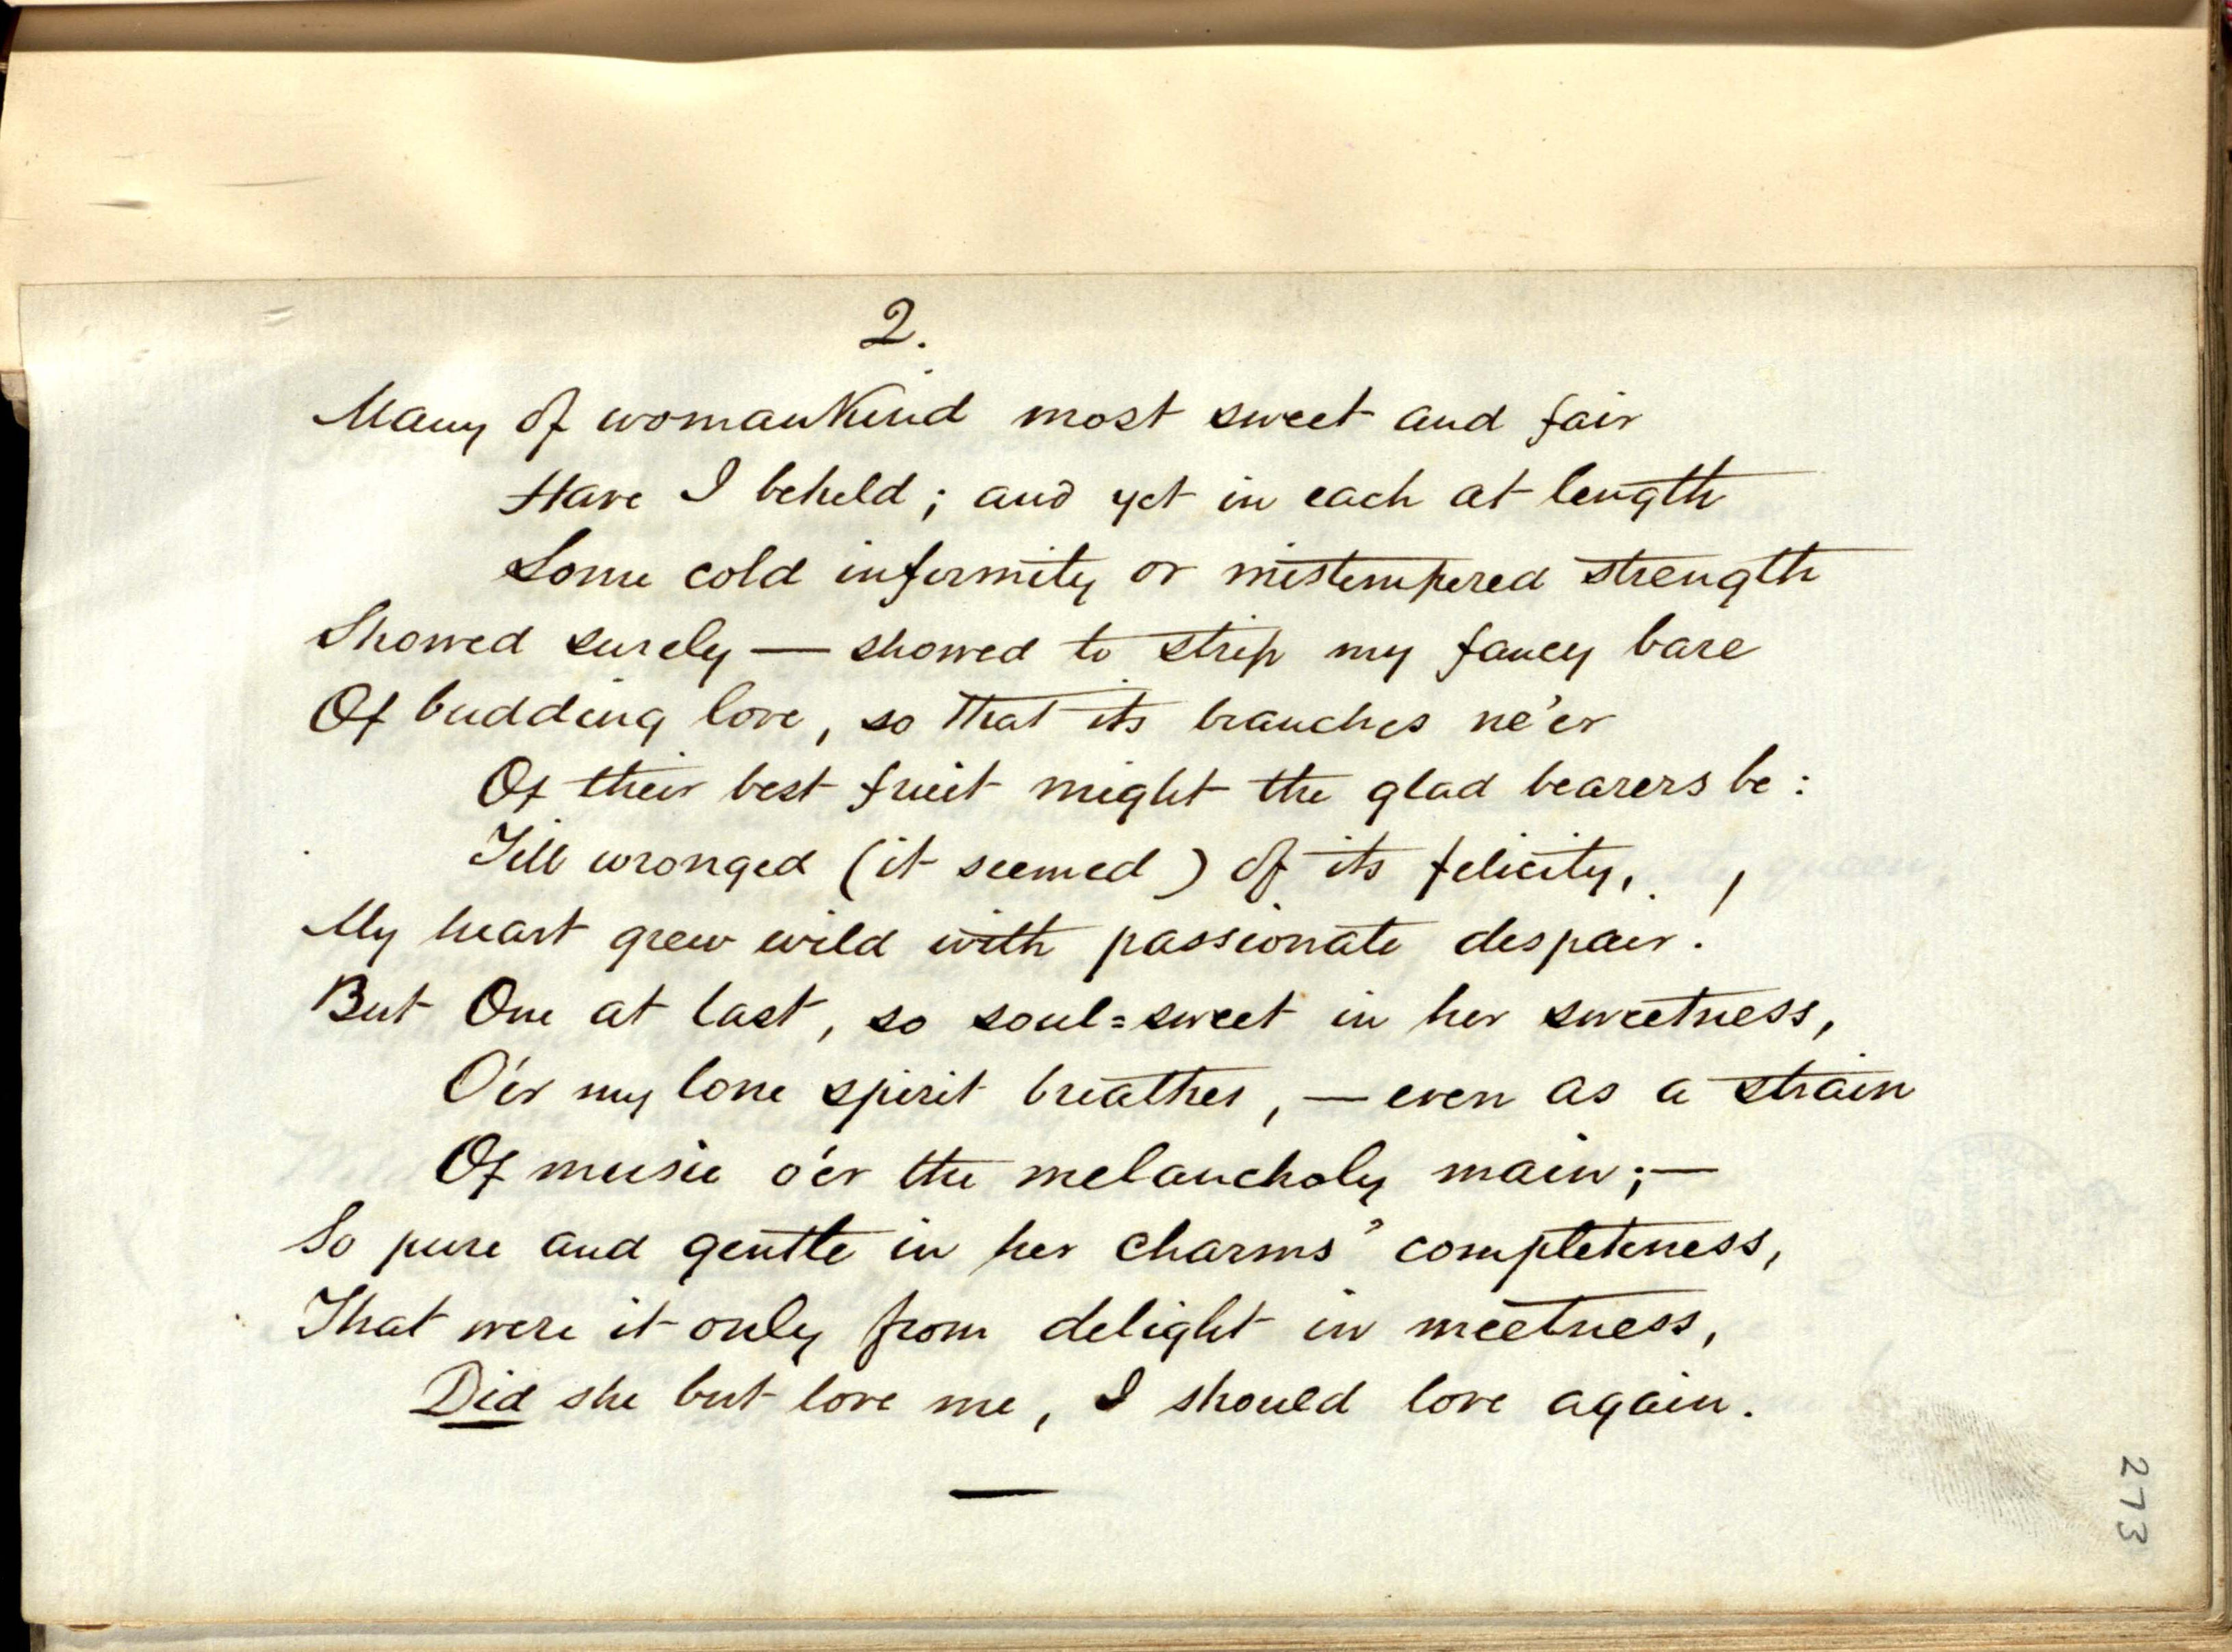 2.
Many of womankind most sweet and fair
Have I beheld; and yet in each at length
Some cold infirmity or mistempered strength
Showed surely — showed to strip my fancy bare
Of budding love, so that its branches ne'er
Of their best fruit might the glad bearers be:
Till wronged (it seemed) of its felicity,
My heart grew wild with passionate despair.
But One at last, so soul=sweet in her sweetness,
O'er my lone spirit breathes, — even as a strain
Of music o'er the melancholy main; —
So pure and gentle in her charms' completeness,
That were it only from delight in meetness,
Did she but love me, I should love again.
273